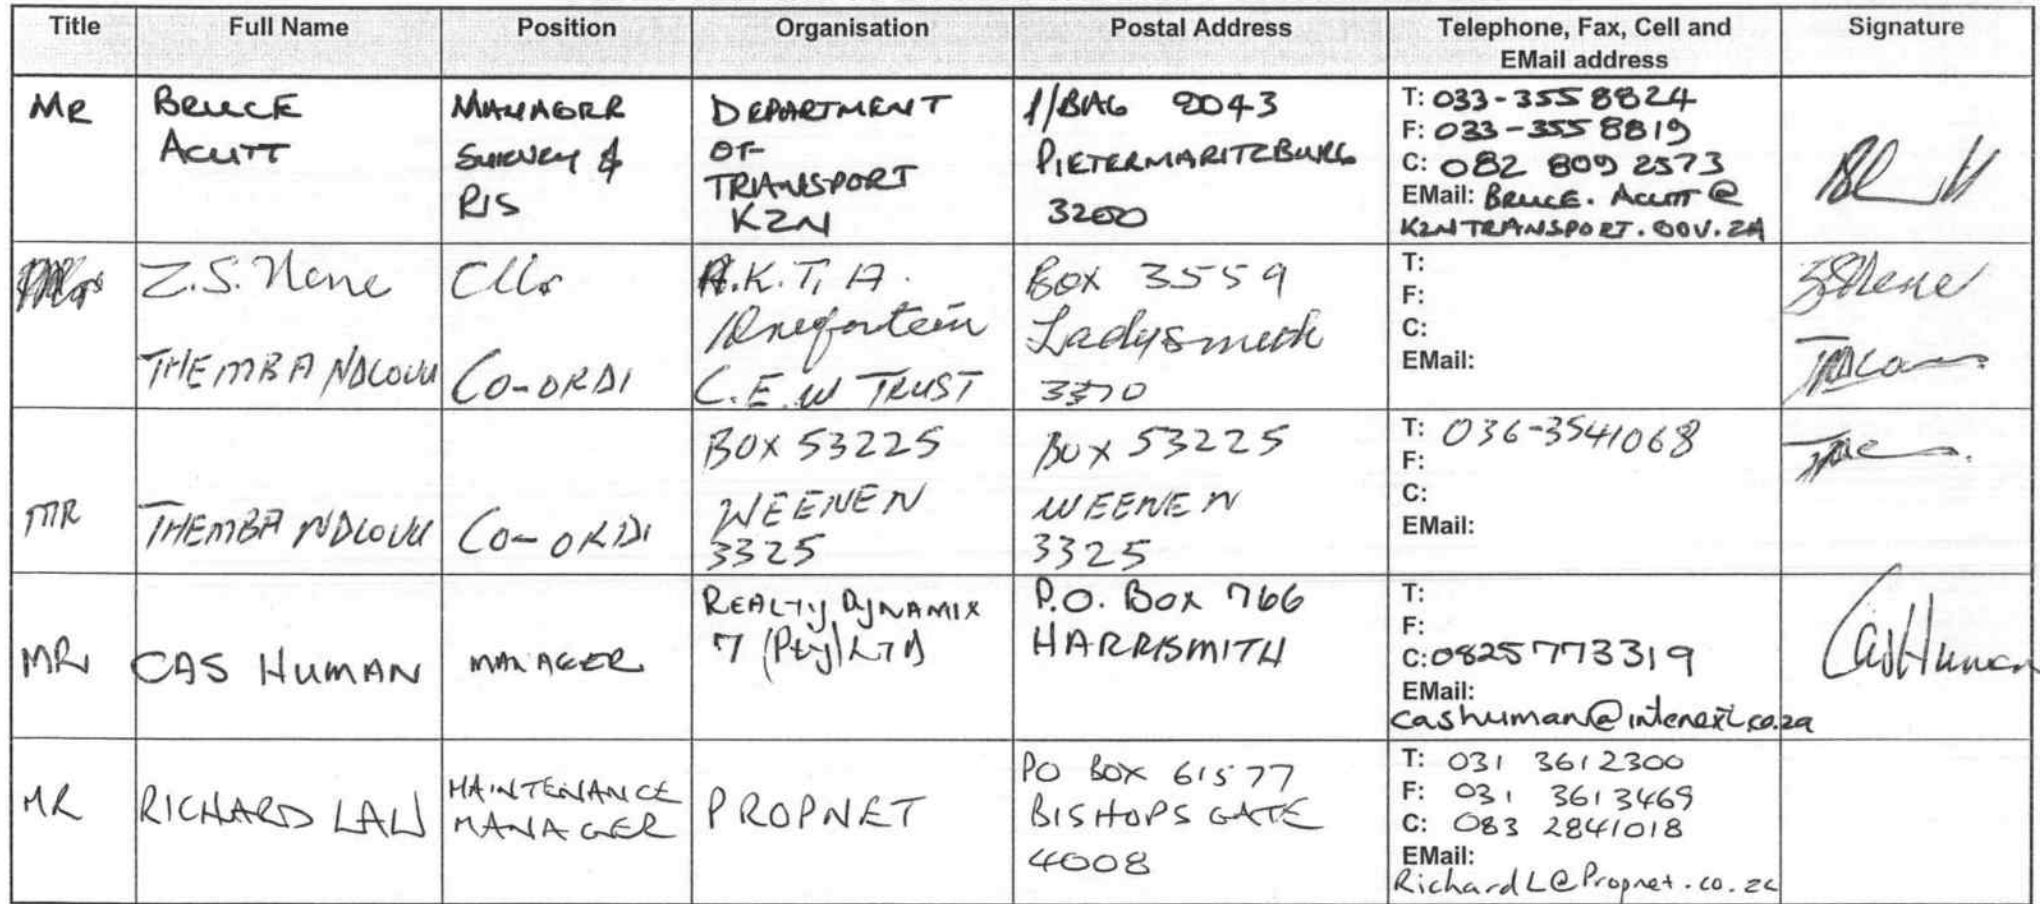 Title Full Name Position Organisation Postal Address Telephone, Fax, Cell and Signature
EMail address
MR
BRUCE
ACUTT
MANAGER
SURVEY &
RIS
DEPARTMENT
OF
TRANSPORT
KZN
P/BAG 9043
PIETERMARITZBURG
3200
T: 033-355 8824
F: 033-355 8819
C: 082 809 2573
EMail: BRUCE.ACUTT@
KZNTRANSPORT.GOV.ZA
Z.S. Nene
THEMBA NDLOVU
Cllr
CO-ORDI
A.K.T.A.
Driefontein
C.E.W TRUST
BOX 3559
Ladysmith
3370
T:
F:
C:
EMail:
ZSNene
MR
THEMBA NDLOVU
CO-ORDI
BOX 53225
WEENEN
3325
BOX 53225
WEENEN
3325
T: 036-3541068
F:
C:
EMail:
MR
CAS HUMAN
MANAGER
REALTY DYNAMIX
7 (Pty) LTD
P.O. BOX 766
HARRISMITH
T:
F:
C: 0825773319
EMail:
cashuman@intenext.co.za
CasHuman
MR
RICHARD LAW
MAINTENANCE
MANAGER
PROPNET
PO BOX 61577
BISHOPSGATE
4008
T: 031 3612300
F: 031 3613469
C: 083 2841018
EMail:
RichardL@Propnet.co.za